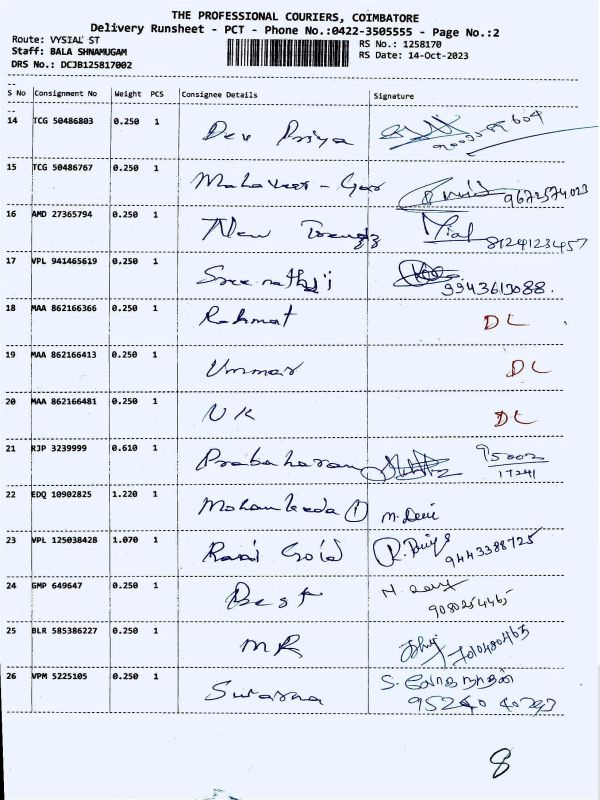 THE PROFESSIONAL COURIERS, COIMBATORE
Delivery Runsheet - PCT - Phone No.:0422-3505555 - Page No.:2
Route: VYSIAL ST
RS No.: 1258170
Staff: BALA SHNAMUGAM
RS Date: 14-Oct-2023
DRS No.: DCJB125817002
S No Consignment No Weight PCS Consignee Details Signature
14 TCG 50486803 0.250 1 Dev Priya
15 TCG 50486767 0.250 1 Mahaveer - 9672574023
16 AMD 27365794 0.250 1 New Trendz 8124123457
17 VPL 941465619 0.250 1 Sreenathji 9943613088.
18 MAA 862166366 0.250 1 Rahmat DL
19 MAA 862166413 0.250 1 Ummar DL
20 MAA 862166481 0.250 1 UK DL
21 RJP 3239999 0.610 1 Prabaharan 95002
17241
22 EDQ 10902825 1.220 1 ① M. Devi
23 VPL 125038428 1.070 1 Gold R. Priya 9443388725
24 GMP 649647 0.250 1 Best 9080254465
25 BLR 585386227 0.250 1 MR 7010480463
26 VPM 5225105 0.250 1 Suvarna S.
8